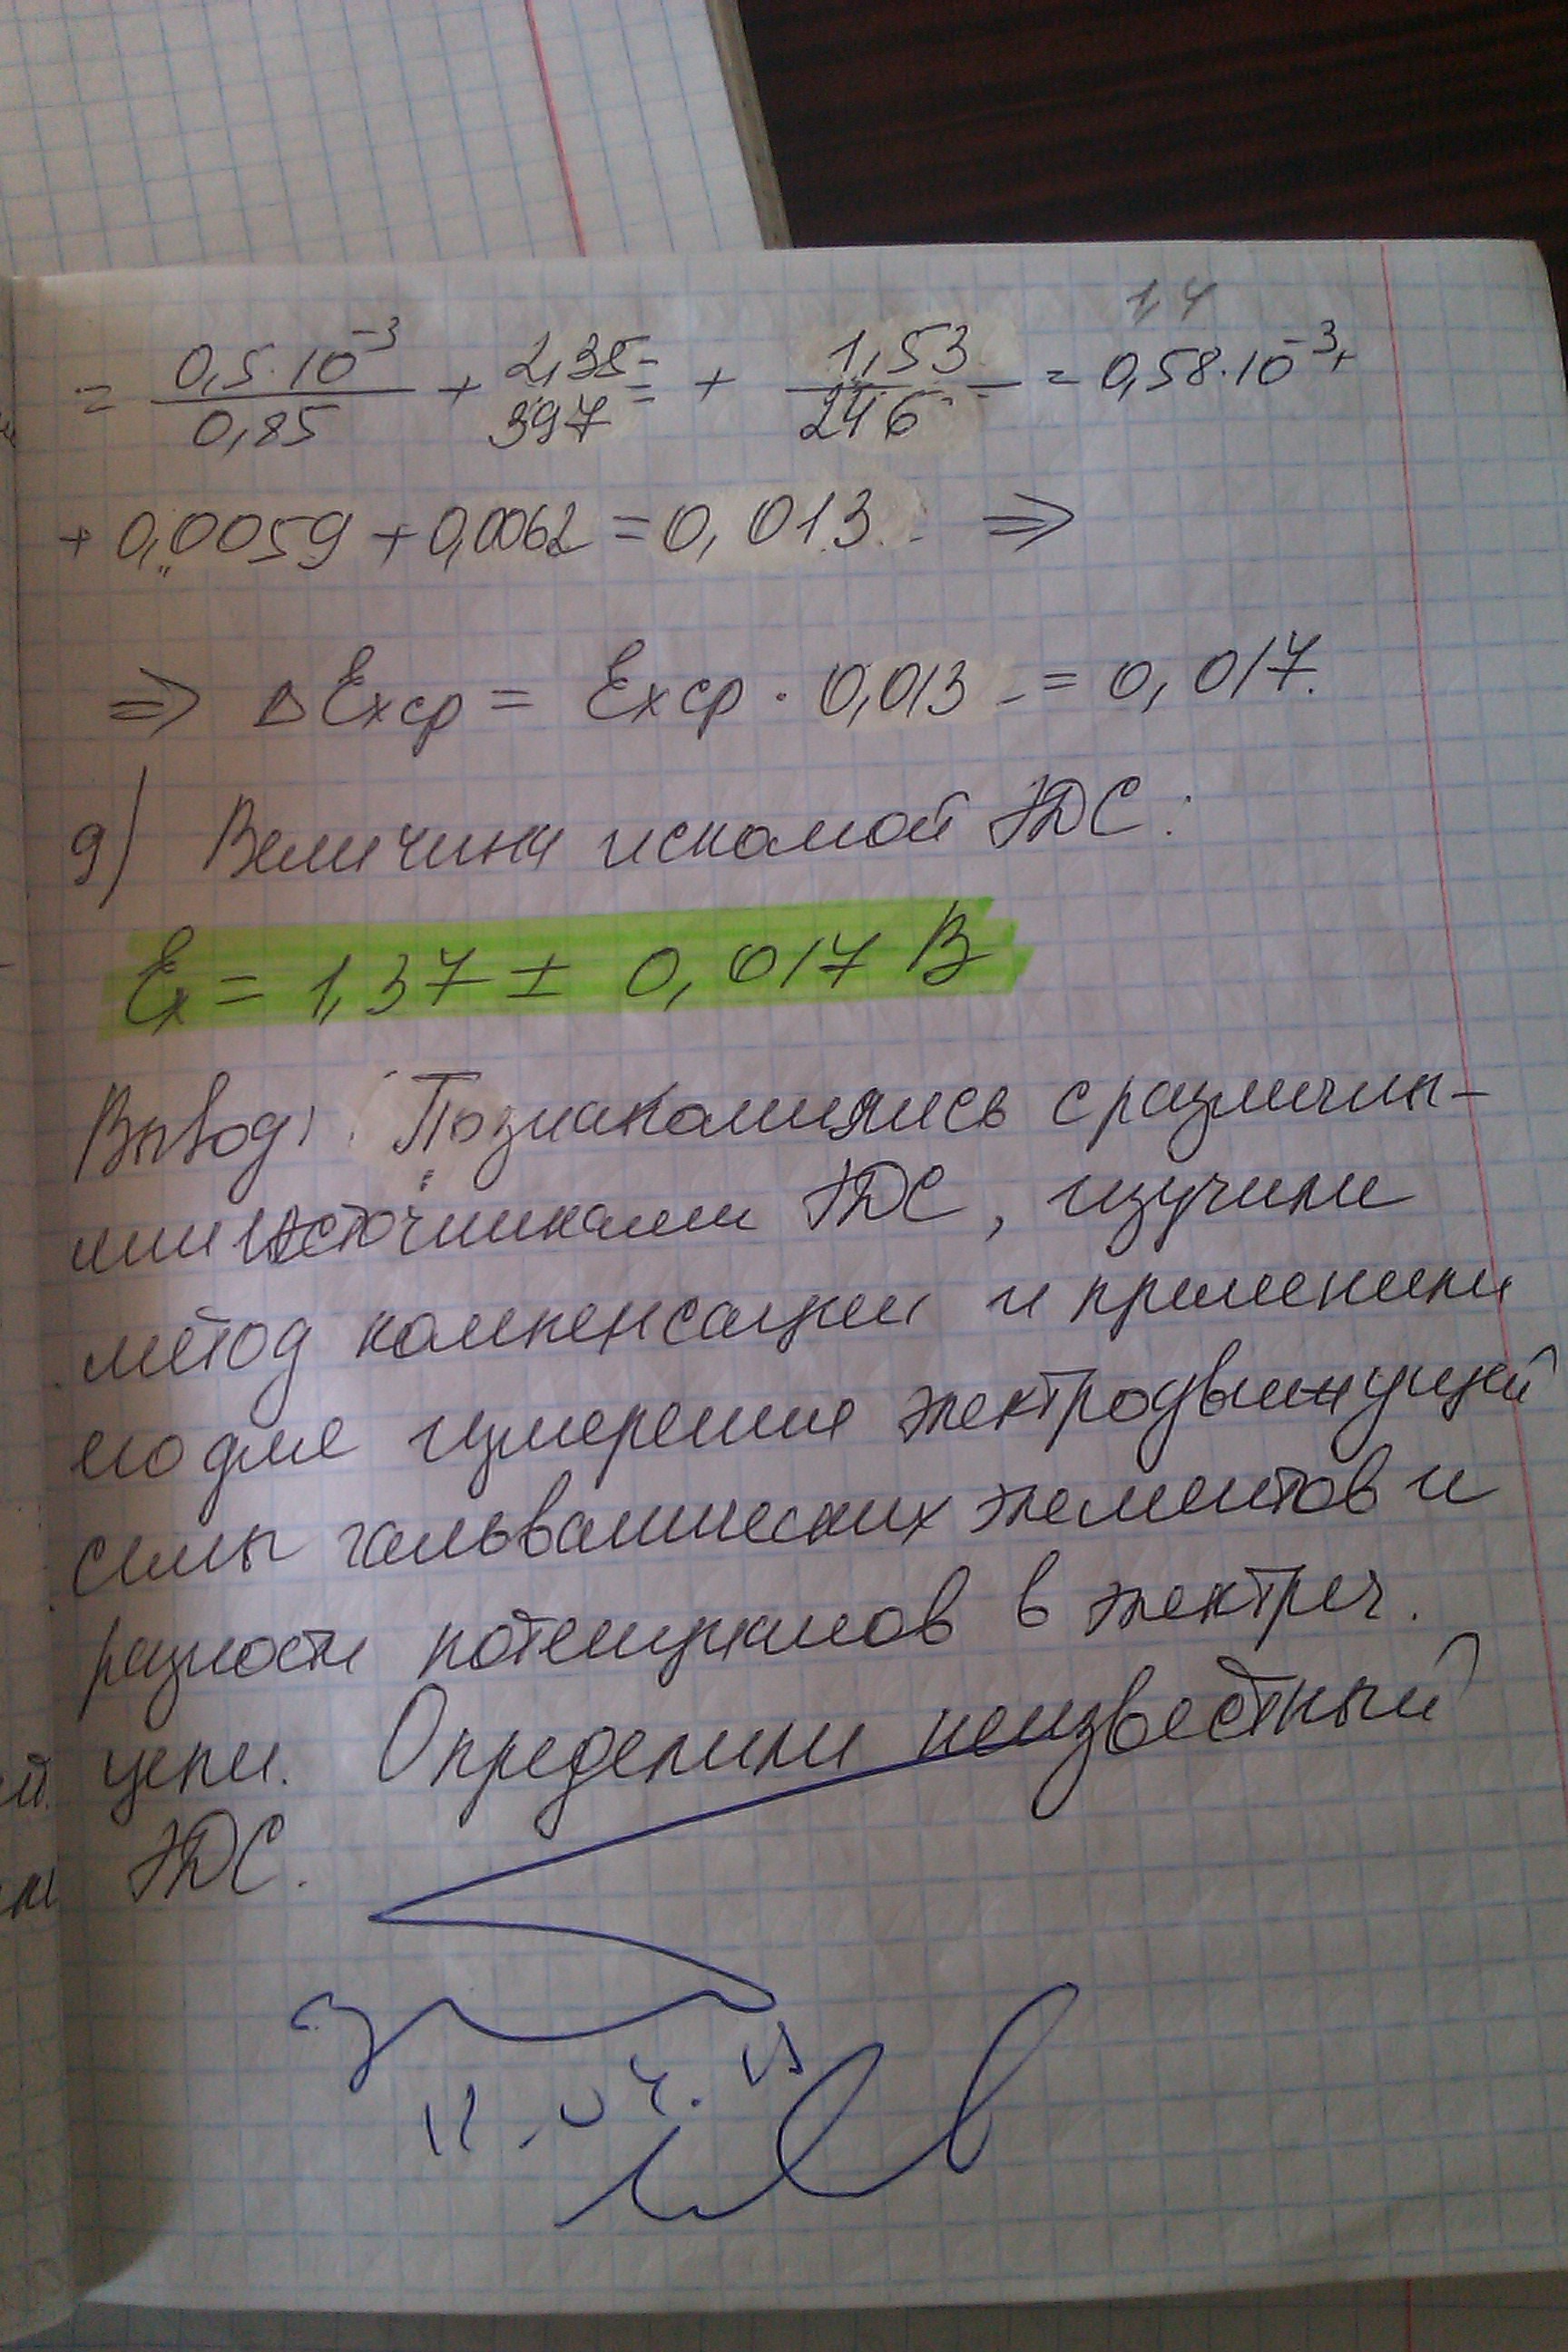 1,4
= 0,5·10⁻³/0,85 + 2,35/397 + 1,53/246 = 0,58·10⁻³+
+ 0,0059 + 0,0062 = 0,013 ⇒
⇒ ΔExср = Exср · 0,013 = 0,017.
9) Величина искомой ЭДС:
Ex = 1,37 ± 0,017 В
Вывод: Познакомились с различны-
ми источниками ЭДС, изучили
метод компенсации и применили
его для измерения электродвижущей
силы гальванических элементов и
разности потенциалов в электрич.
цепи. Определили неизвестный
ЭДС.